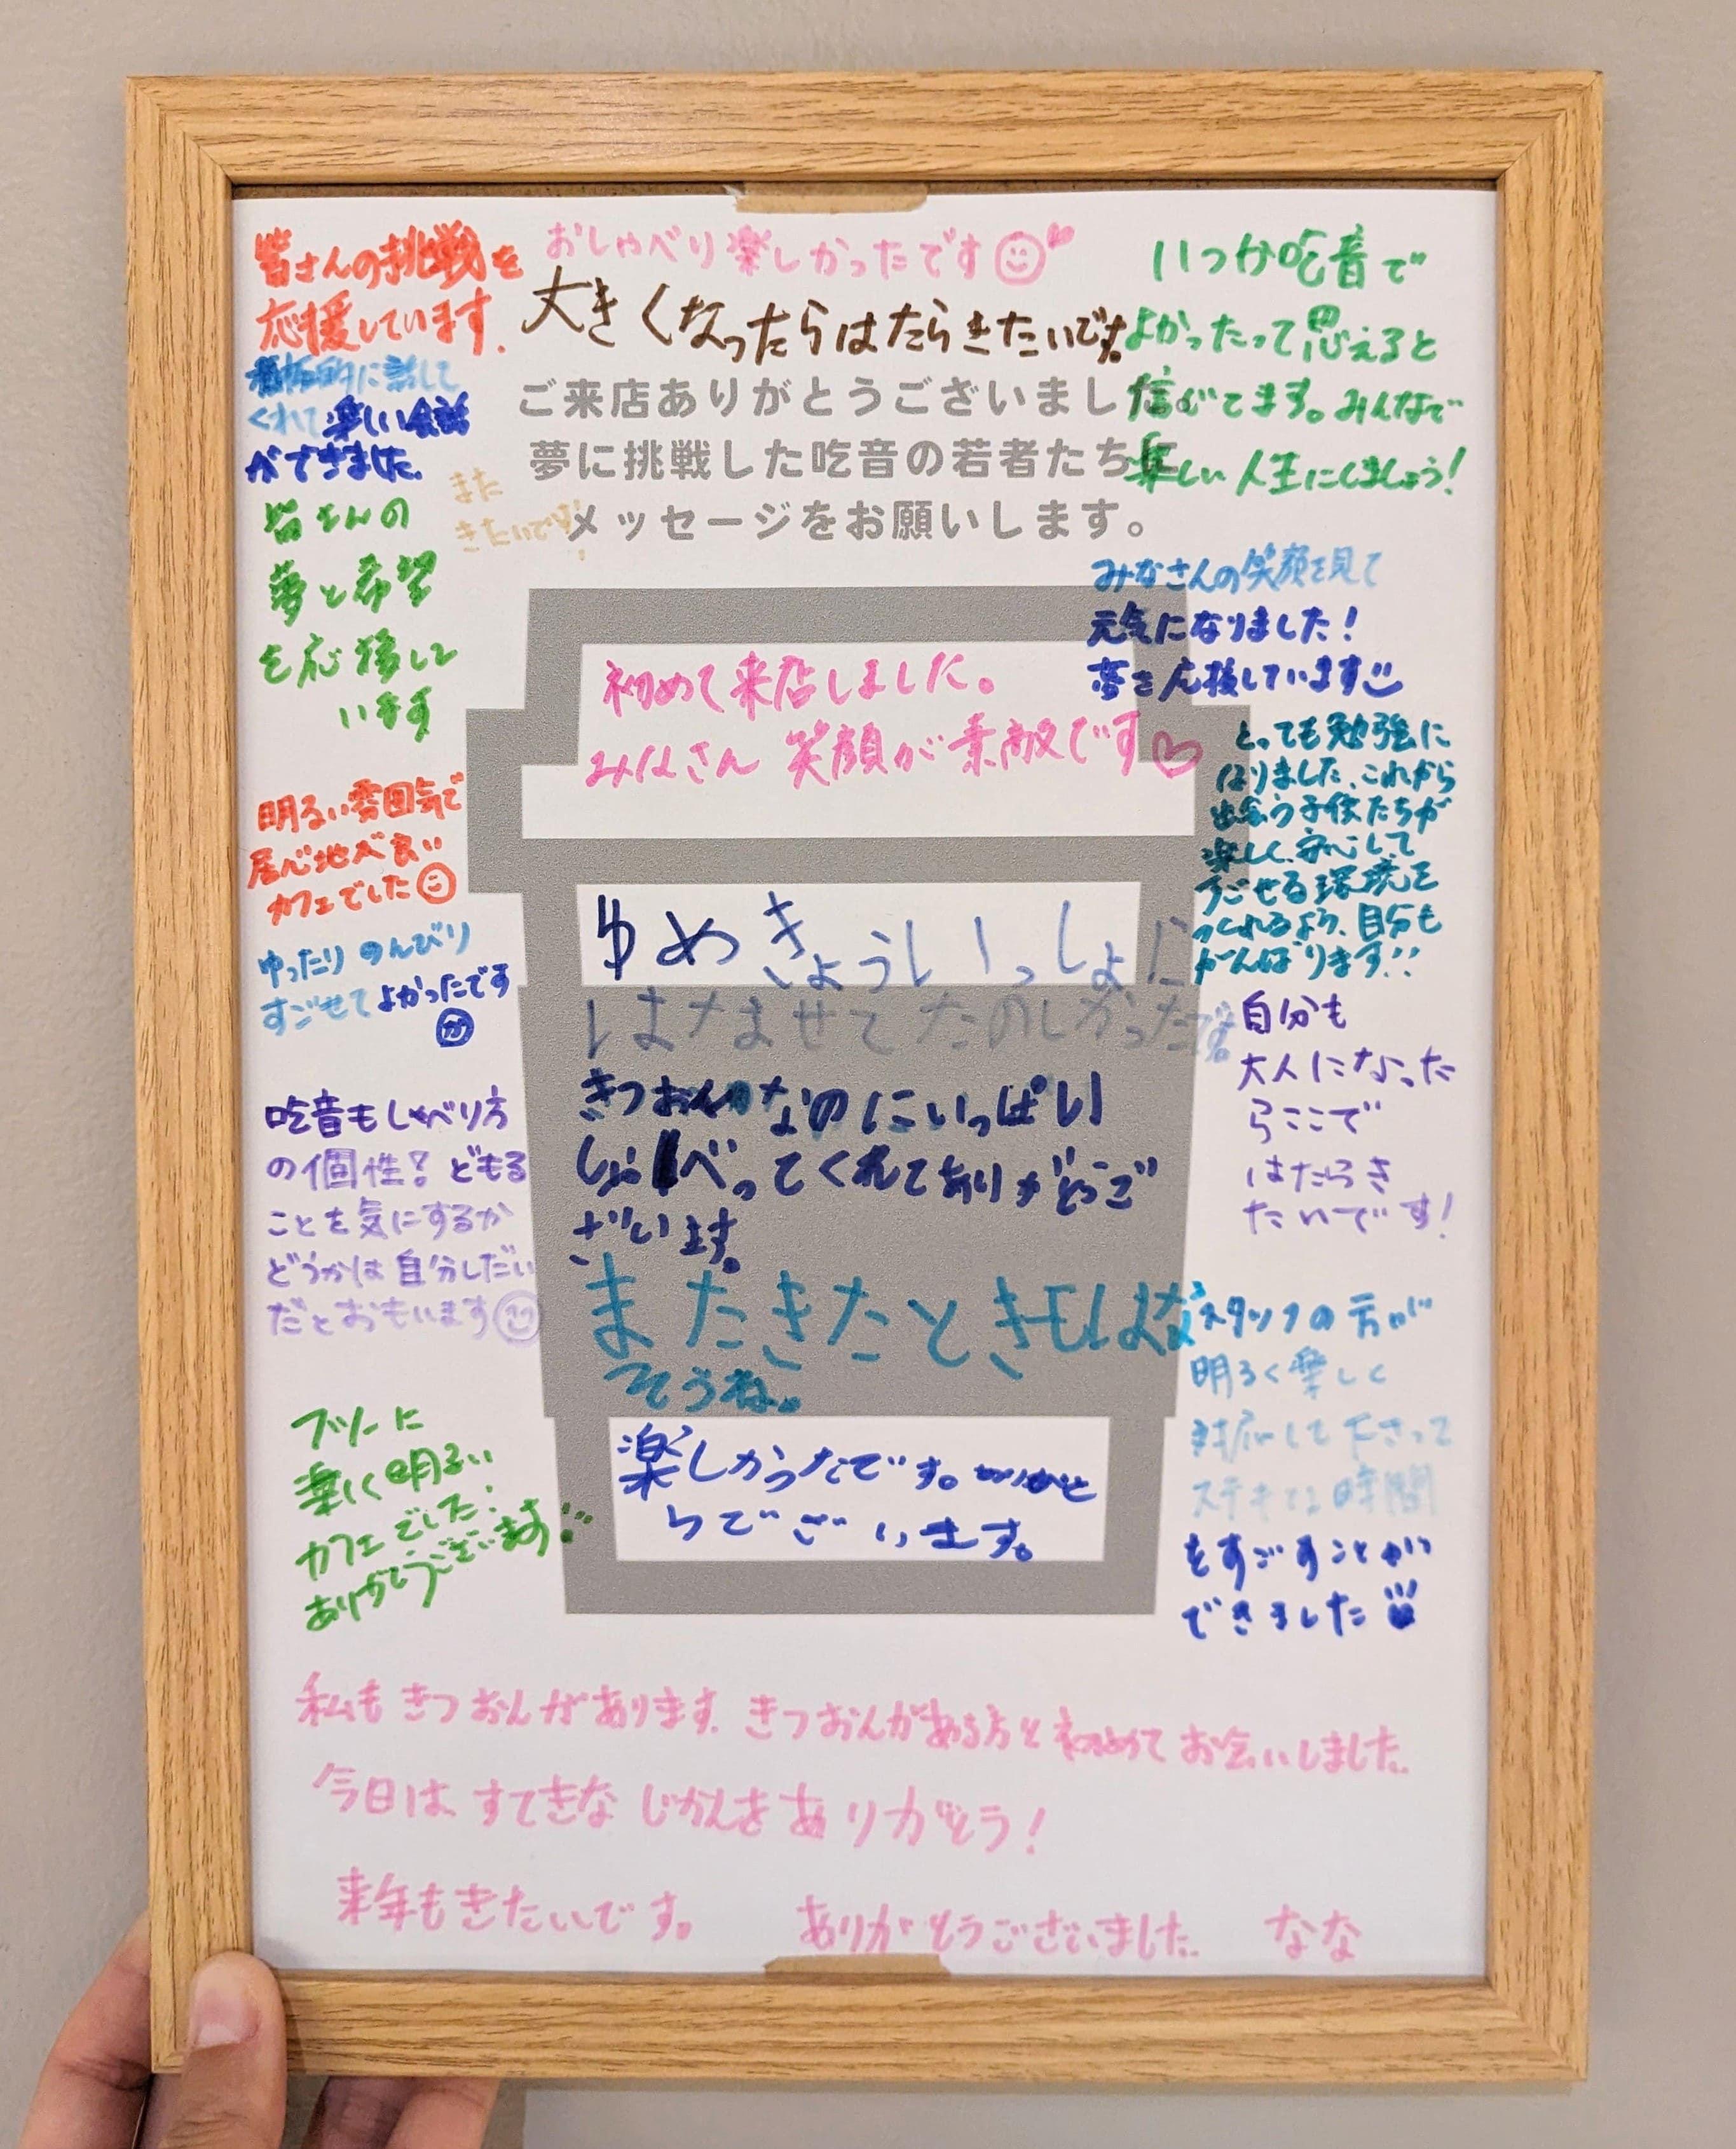 皆さんの挑戦を
応援しています.
おしゃべり楽しかったです
大きくなったらはたらきたいです。
いつか吃音で
よかったって思えると
信じてます。みんなで
楽しい人生にしましょう!
積極的に話して
くれて楽しい会話
ができました.
ご来店ありがとうございました。
夢に挑戦した吃音の若者たちに
メッセージをお願いします。
また
きたいです!
皆さんの
夢と希望
を応援して
います
みなさんの笑顔を見て
元気になりました!
夢を応援しています
初めて来店しました。
みなさん 笑顔が素敵です♡
とっても勉強に
なりました、これから
出会う子供たちが
楽しく、安心して
すごせる環境を
つくれるよう、自分も
がんばります!!
明るい雰囲気で
居心地が良い
カフェでした
ゆったりのんびり
すごせてよかったです
ゆめきょうしいっしょに
しまナませてたのしかったです。
きつおんなのにいっぱい
しゃべってくれてありがとうご
ざいます。
またきたときもはな
そうね。
自分も
大人になった
らここで
はたらき
たいです!
吃音もしゃべり方
の個性!どもる
ことを気にするか
どうかは自分しだい
だとおもいます
スタッフの方が
明るく楽しく
対応して下さって
ステキな時間
をすごすことが
できました
フツーに
楽しく明るい
カフェでした!
ありがとうございます
楽しかったです。ありがと
うでございます。
私もきつおんがあります. きつおんがある方と初めてお会いしました.
今日は、すてきなじかんをありがとう!
来年もきたいです。 ありがとうございました. なな